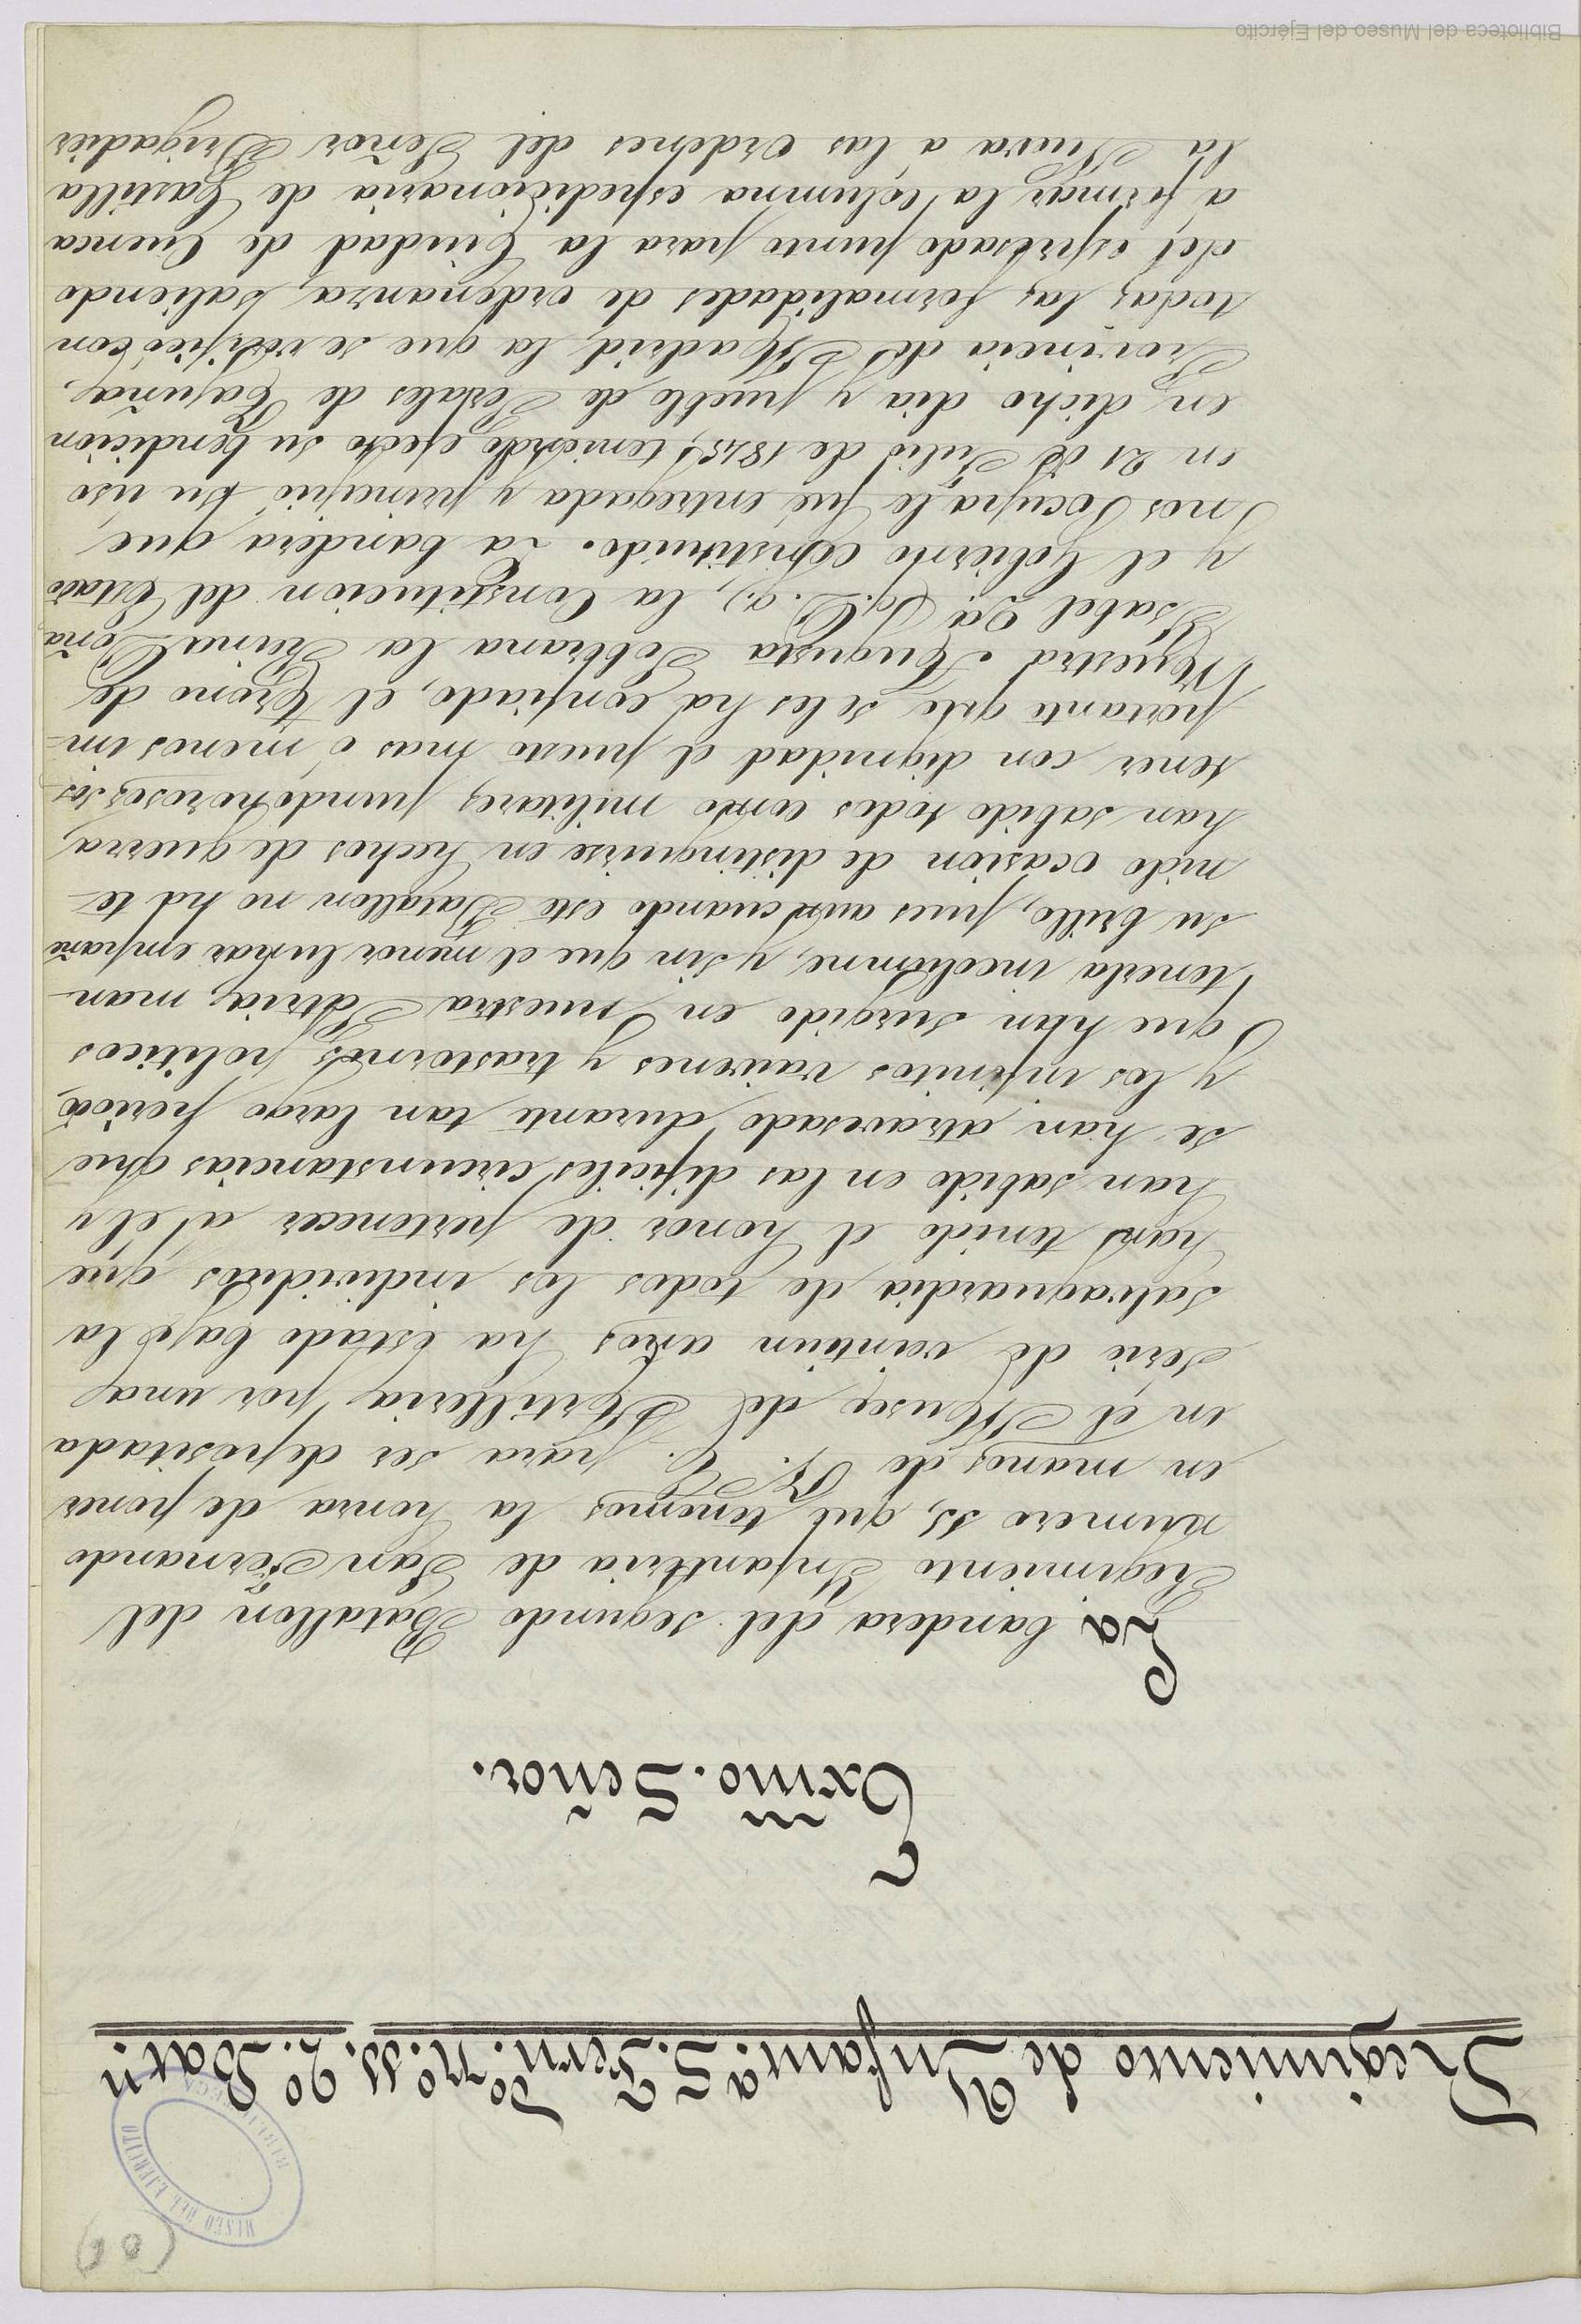 (60)
MUSEO DEL EJERCITO
BIBLIOTECA
Regimiento de Infantª. S. Fernᵈᵒ. nº. 11. 2º. Batⁿ.
Exmo. Señor.
La bandera del segundo Batallon del
Regimiento Infanteria de San Fernando
número 11, que tenemos la honra de poner
en manos de V. E. para ser depositada
en el Museo de Artilleria, por una
serie de veintiun años ha estado bajo la
salvaguardia de todos los individuos que
han tenido el honor de pertenecer a él y
han sabido en las dificiles circunstancias que
se han atravesado durante tan largo periodo
y los infinitos vaivenes y trastornos politicos
que han surgido en nuestra Patria, man-
tenerla incolumne, y sin que el menor lunar empañe
su brillo, pues aun cuando este Batallon no há te-
nido ocasion de distinguirse en hechos de guerra,
han sabido todos como militares pundonorosos sos-
tener con dignidad el puesto mas ó menos im-
portante que se les há confiado, el trono de
Nuestra Augusta Soberana la Reina Doña
Isabel 2ª (q. D. g.), la Constitucion del Estado
y el Gobierno constituido. La bandera que
nos ocupa le fué entregada y principió su uso
en 21 de Julio de 1845, teniendo efecto su bendicion
en dicho dia y pueblo de Perales de Tajuña,
Provincia de Madrid, la que se verificó con
todas las formalidades de ordenanza, saliendo
del espresado punto para la Ciudad de Cuenca
á formar la Columna espedicionaria de Castilla
la Nueva á las ordenes del Señor Brigadier
Biblioteca del Museo del Ejército